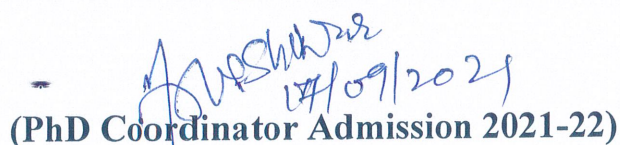 17/09/2021
(PhD Coordinator Admission 2021-22)